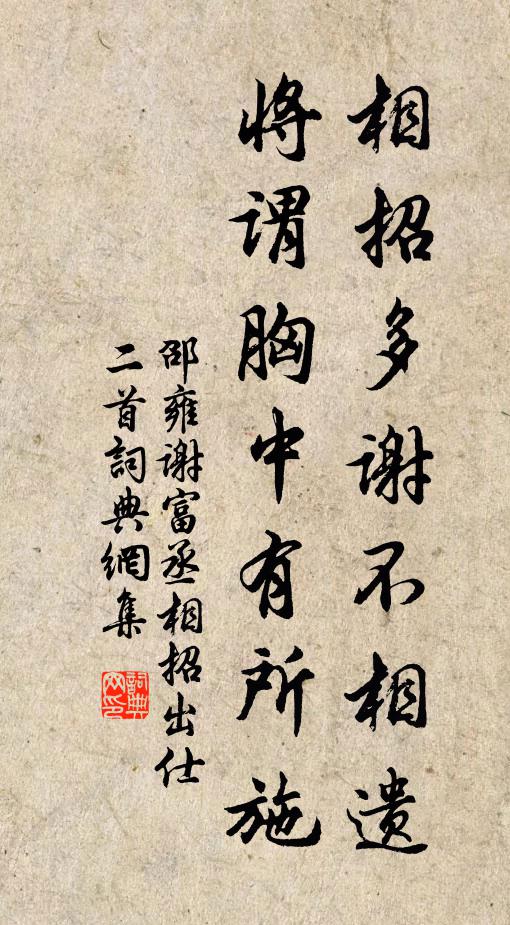 相招多谢不相遗
将谓胸中有所施
邵雍谢富丞相招出仕
二首詞典網集
詞典
网印